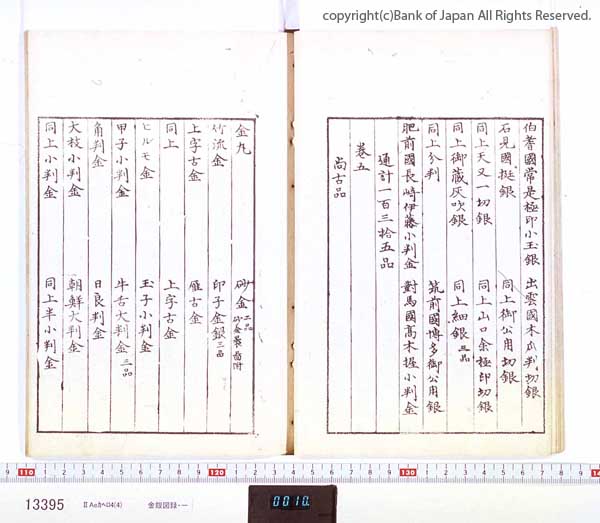 copyright(c)Bank of Japan All Rights Reserved.
伯耆國常是極印小玉銀 出雲國木瓜判切銀
石見國挺銀 同上御公用切銀
同上天又一切銀 同上山口余極印切銀
同上御藏灰吹銀 同上細銀 三品
同上分判 筑前國博多御公用銀
肥前國長崎伊藤小判金 對馬國高木握小判金
通計一百三拾五品
卷五
尚古品
金丸 砂金 二品
竹流金 印子金銀 三品
上字古金 雁古金
同上 上字古金
ヒルモ金 玉子小判金
甲子小判金 牛舌大判金 三品
角判金 日良判金
大枝小判金 朝鮮大判金
同上小判金 同上半小判金
9 110 1 2 3 4 5 6 7 8 9 120 1 2 3 4 5 6 7 8 9 130 1 2 3 4 5 6 7 8 9
13395 ⅡAeカヘロ4(4) 金銀図録・一
0010